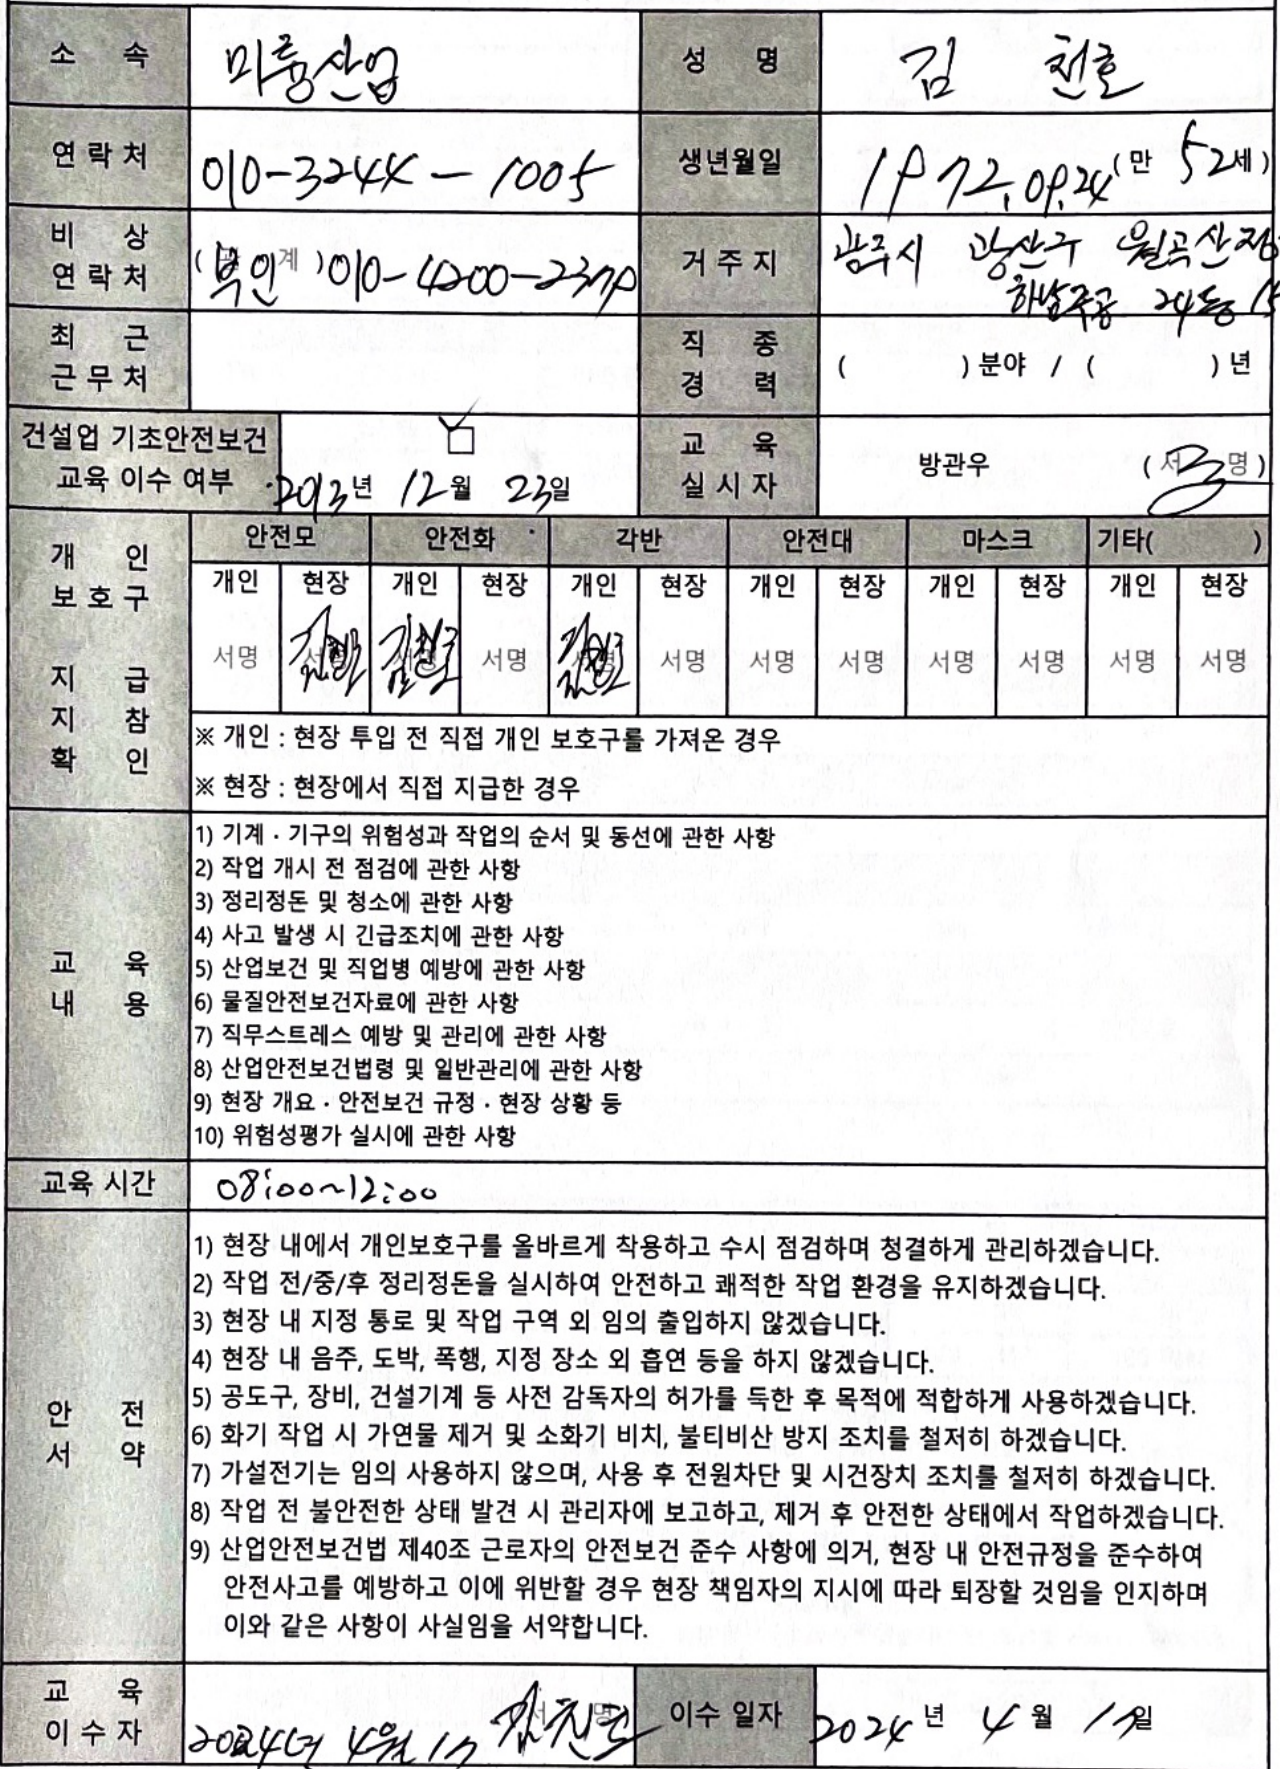 소 속 미룡산업 성 명 김 천호
연락처 010-3244-1005 생년월일 1972.09.24 (만 52세)
비 상 연락처 (관 계) 부인 010-4200-2370 거주지 광주시 광산구 월곡산정
하남주공 24동 15
최 근 근무처 직 종 경 력 ( ) 분야 / ( ) 년
건설업 기초안전보건
교육 이수 여부 2013년 12월 23일 교 육 실시자 방관우 (서 명)
개 인 보호구 지 급 지 참 확 인
안전모 안전화 각반 안전대 마스크 기타( )
개인 현장 개인 현장 개인 현장 개인 현장 개인 현장 개인 현장
서명 김천호 김천호 서명 김천호 서명 서명 서명 서명 서명 서명 서명
※ 개인 : 현장 투입 전 직접 개인 보호구를 가져온 경우
※ 현장 : 현장에서 직접 지급한 경우
교 육 내 용
1) 기계 · 기구의 위험성과 작업의 순서 및 동선에 관한 사항
2) 작업 개시 전 점검에 관한 사항
3) 정리정돈 및 청소에 관한 사항
4) 사고 발생 시 긴급조치에 관한 사항
5) 산업보건 및 직업병 예방에 관한 사항
6) 물질안전보건자료에 관한 사항
7) 직무스트레스 예방 및 관리에 관한 사항
8) 산업안전보건법령 및 일반관리에 관한 사항
9) 현장 개요 · 안전보건 규정 · 현장 상황 등
10) 위험성평가 실시에 관한 사항
교육 시간 08:00~12:00
안 전 서 약
1) 현장 내에서 개인보호구를 올바르게 착용하고 수시 점검하며 청결하게 관리하겠습니다.
2) 작업 전/중/후 정리정돈을 실시하여 안전하고 쾌적한 작업 환경을 유지하겠습니다.
3) 현장 내 지정 통로 및 작업 구역 외 임의 출입하지 않겠습니다.
4) 현장 내 음주, 도박, 폭행, 지정 장소 외 흡연 등을 하지 않겠습니다.
5) 공도구, 장비, 건설기계 등 사전 감독자의 허가를 득한 후 목적에 적합하게 사용하겠습니다.
6) 화기 작업 시 가연물 제거 및 소화기 비치, 불티비산 방지 조치를 철저히 하겠습니다.
7) 가설전기는 임의 사용하지 않으며, 사용 후 전원차단 및 시건장치 조치를 철저히 하겠습니다.
8) 작업 전 불안전한 상태 발견 시 관리자에 보고하고, 제거 후 안전한 상태에서 작업하겠습니다.
9) 산업안전보건법 제40조 근로자의 안전보건 준수 사항에 의거, 현장 내 안전규정을 준수하여
안전사고를 예방하고 이에 위반할 경우 현장 책임자의 지시에 따라 퇴장할 것임을 인지하며
이와 같은 사항이 사실임을 서약합니다.
교 육 이수자 2024년 4월 17 김천호 서 명 이수 일자 2024 년 4 월 17일